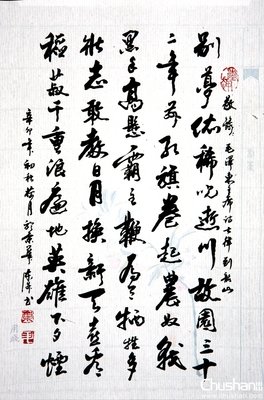 敬錄毛澤東主席詩七律到韶山
别夢依稀咒逝川故園三十
二年前红旗卷起農奴戟
黑手高懸霸主鞭为有牺牲多
壮志敢教日月换新天喜看
稻菽千重浪遍地英雄下夕煙
辛卯年初秋荷月於京華
Chushan
chushan.com